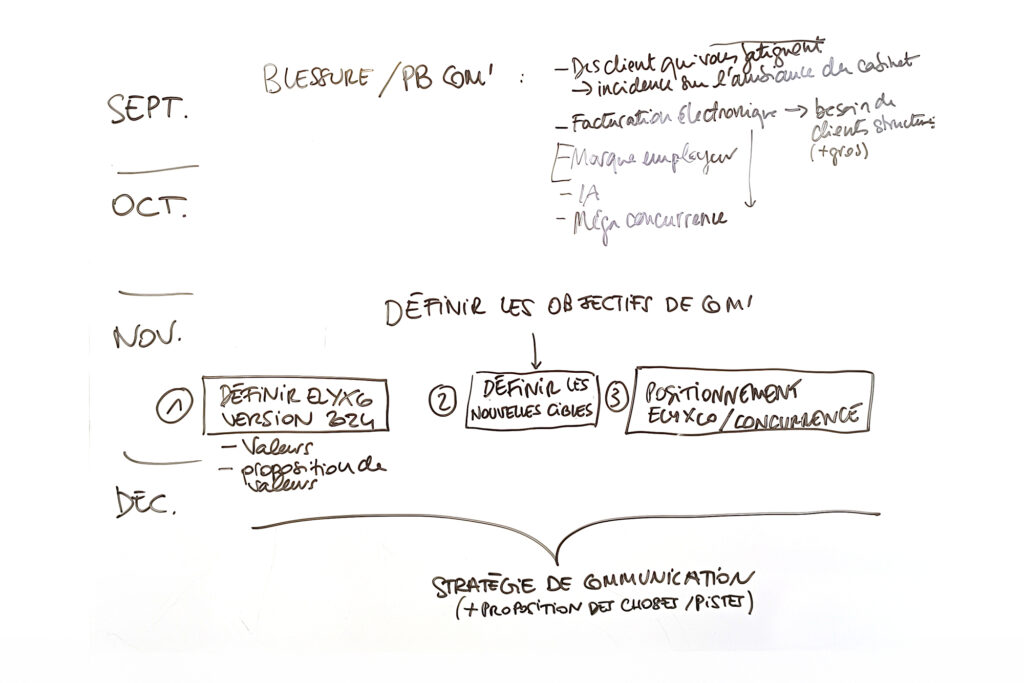 BLESSURE / PB COM' :
- Des client qui vous fatignent
→ incidence sur l'ambiance du cabinet
- Facturation électronique → besoin de
clients structur
(+gros)
Marque employeur
- IA
- Méga concurrence
SEPT.
OCT.
NOV.
DÉC.
DÉFINIR LES OBJECTIFS DE COM'
1 DÉFINIR ELYXCO
VERSION 2024
- Valeurs
- proposition de
valeurs
2 DÉFINIR LES
NOUVELLES CIBLES
3 POSITIONNEMENT
ELYXCO / CONCURRENCE
STRATÉGIE DE COMMUNICATION
(+ PROPOSITION DES CHOSES / PISTES)